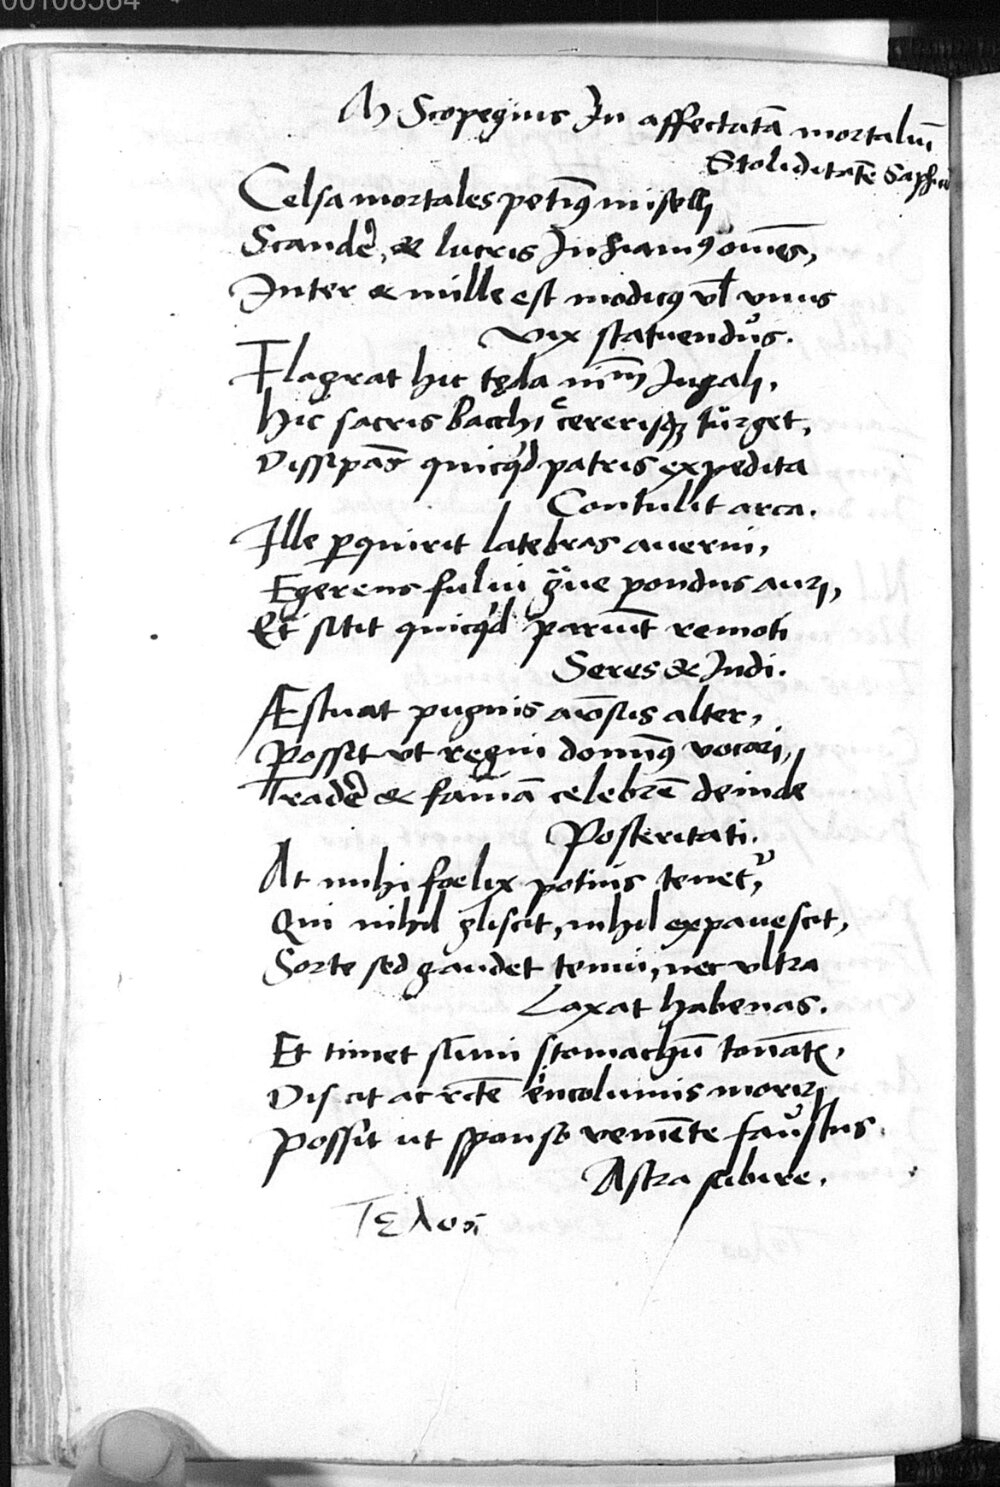 00108564
M Scopegius In affectatā mortaliū
Stoliditatē Sapphicū
Celsa mortales petimꝰ miselli
Scandē, & lucris Inhiamꝰ om̄es,
Inter & mille est modicꝰ vl̄ vnus
Vix statuendus.
Flagrat hic tęda nimm̄ Iugali,
Hic sacris Bacchi cererisqꝫ turget,
Dissipās quicqd patris expedita
Contulit arca.
Ille ꝑquirit latebras auerni,
Egerens fului gue pondus auri,
Et sitit quicqd pariūt remoti
Seres & Indi.
Æstuat pugnis ausus alter,
Possit vt regni dominꝰ vocari,
Tradē & famā celebrē deinde
Posteritati.
At mihi foelix potius tenet,
Qui nihil gliscit, nihil expauescit,
Sorte sed gaudet tenui, nec vltra
Laxat habenas.
Et timet sūmi stomachū tonātꝭ,
Discit ac rcte incolumis moriri
Possit ut sponso veniēte faustus
Astra subire.
Τελος